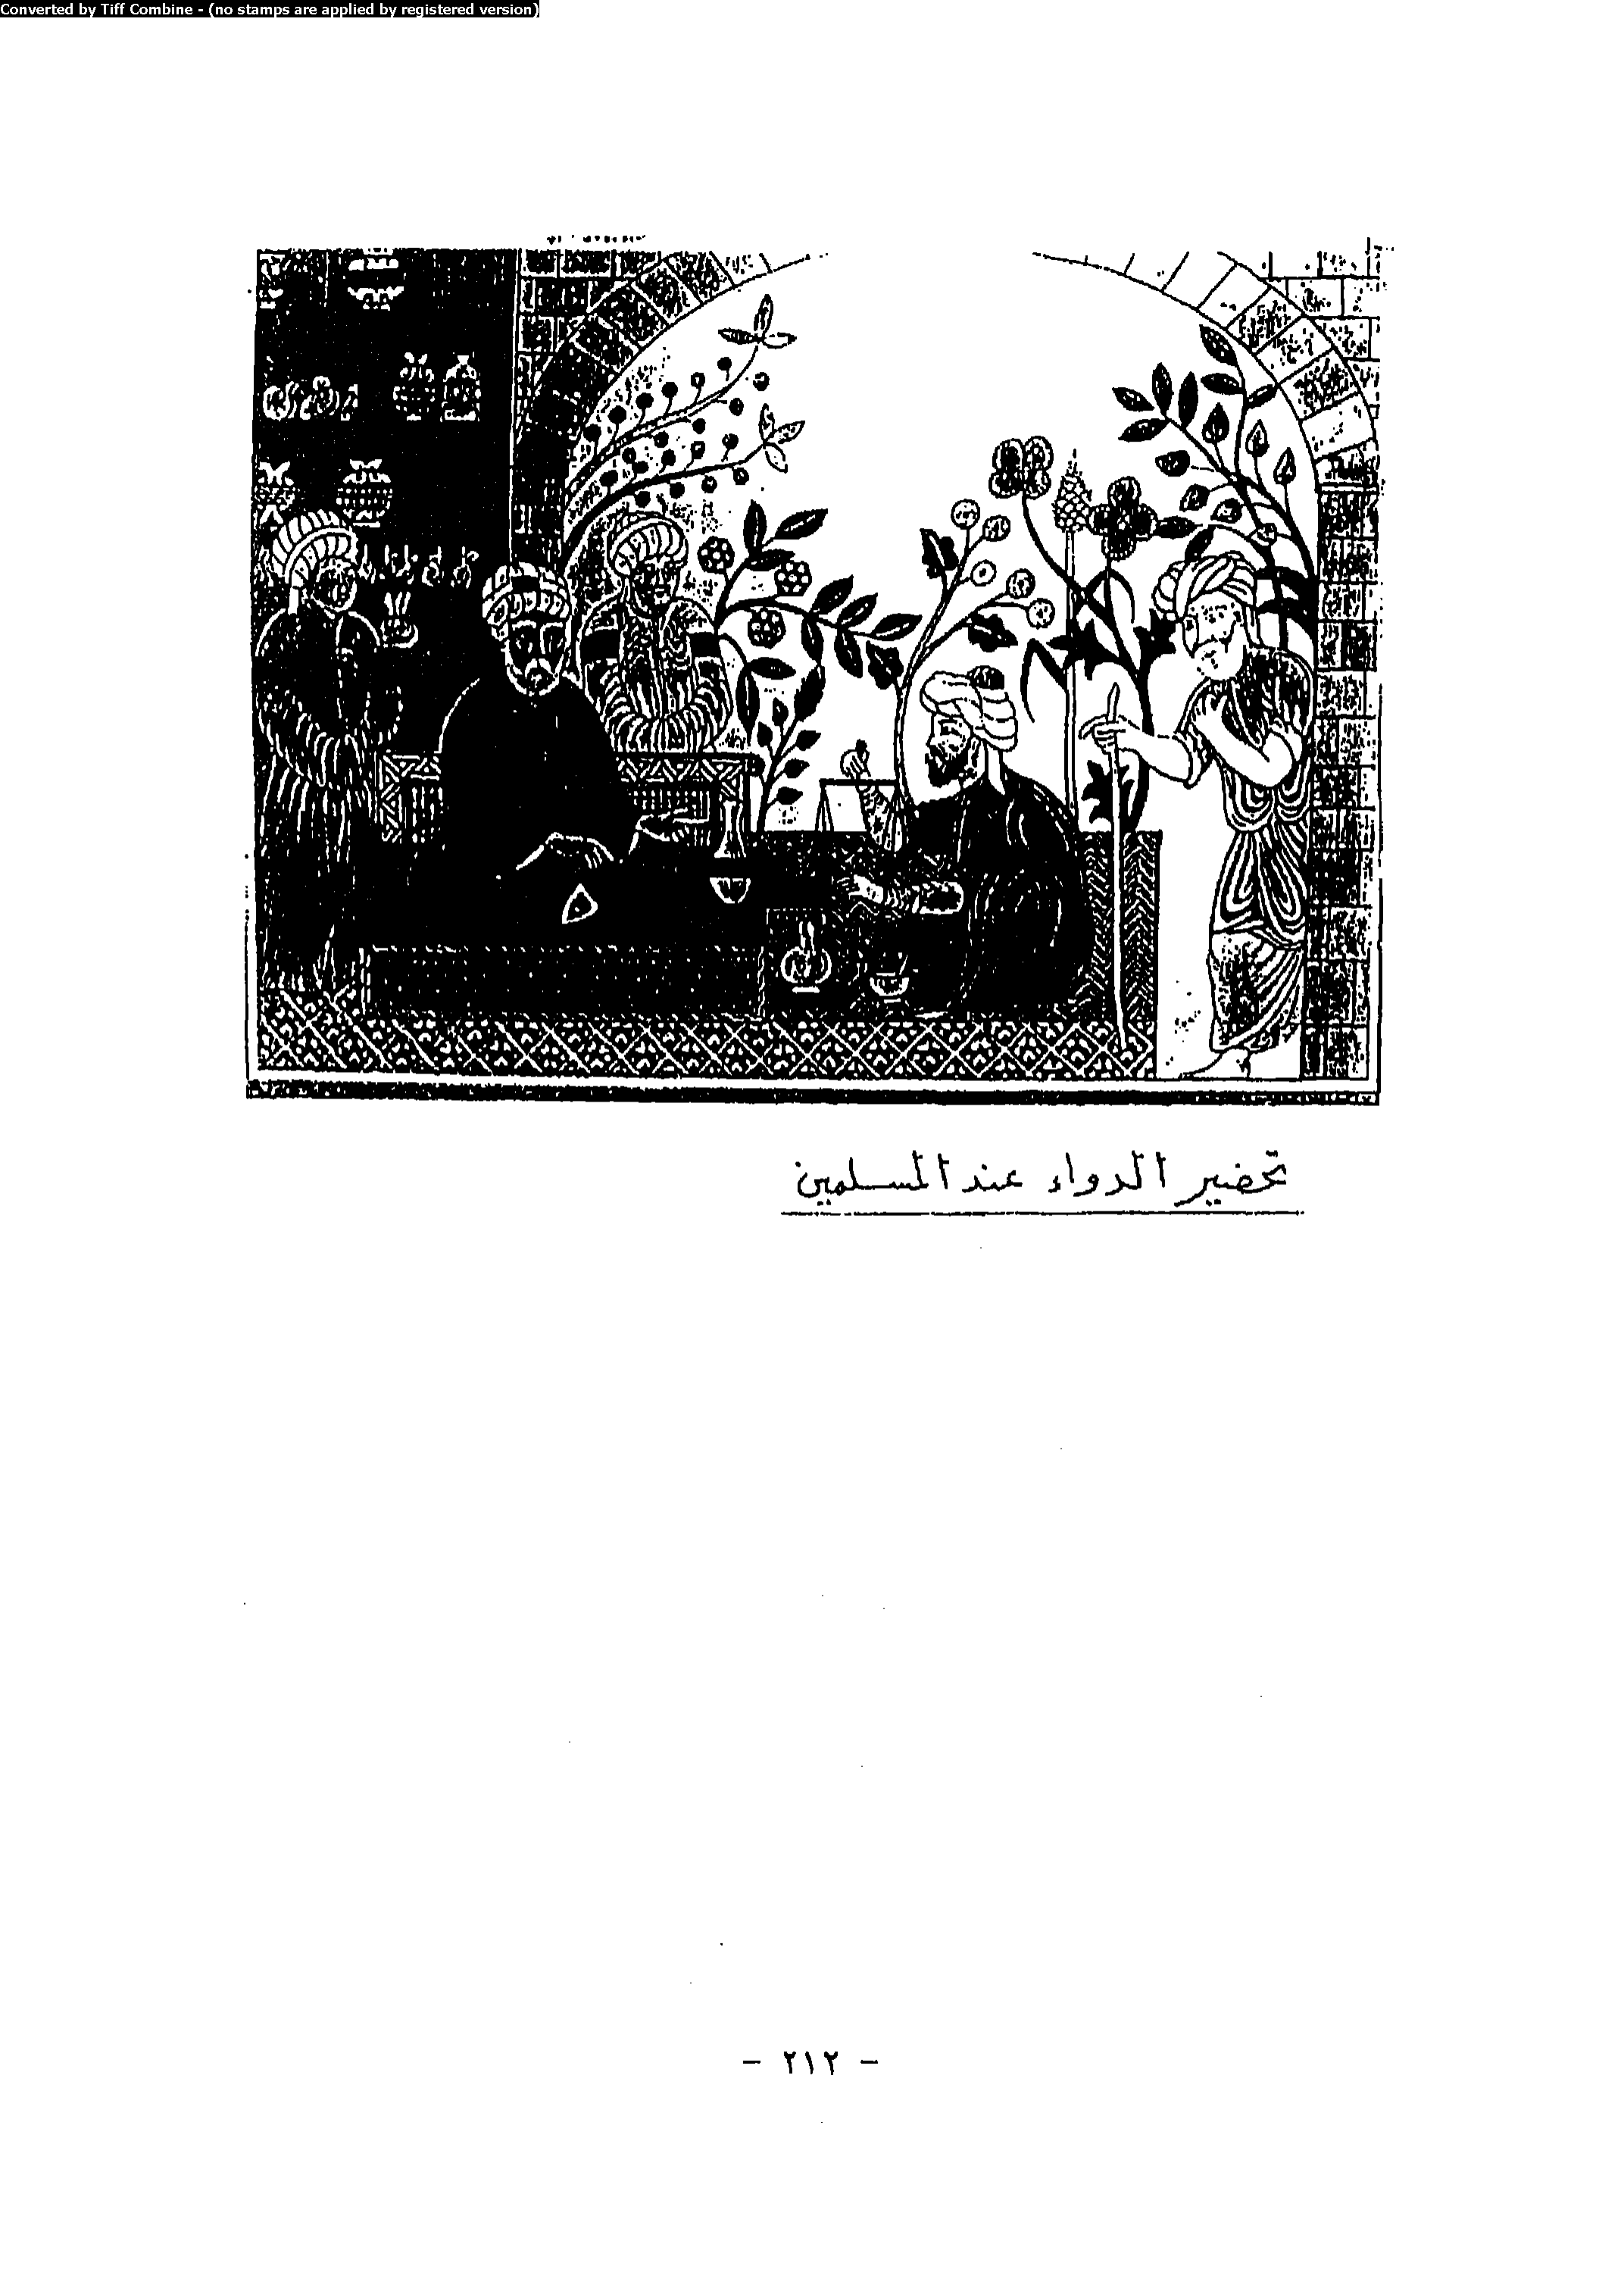 Converted by Tiff Combine - (no stamps are applied by registered version)
تحضير الدواء عند المسلمين
- ٢١٢ -